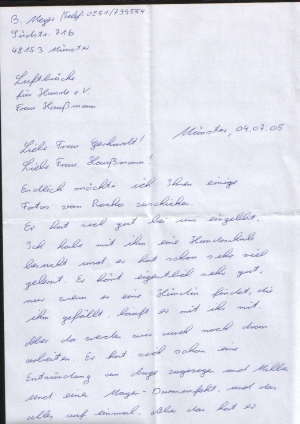 B. Meyer / Telef. 0251/799554
Südstr. 71b
48153 Münster
Luftbrücke
für Hunde e.V.
Frau Haußmann
Münster, 04.07.05
Liebe Frau Gerhardt!
Liebe Frau Haußmann!
Endlich möchte ich Ihnen einige
Fotos von Rocko zuschicken.
Er hat sich gut bei uns eingelebt.
Ich habe mit ihm eine Hundeschule
besucht und er hat schon sehr viel
gelernt. Er hört eigentlich sehr gut,
nur wenn er eine Hündin findet, die
ihm gefällt läuft er mit ihr mit.
Aber da werden wir auch noch dran
arbeiten. Er hat sich schon eine
Entzündung am Auge zugezogen und
und einen Magen-Darminfekt, und das
alles auf einmal. Aber das hat er